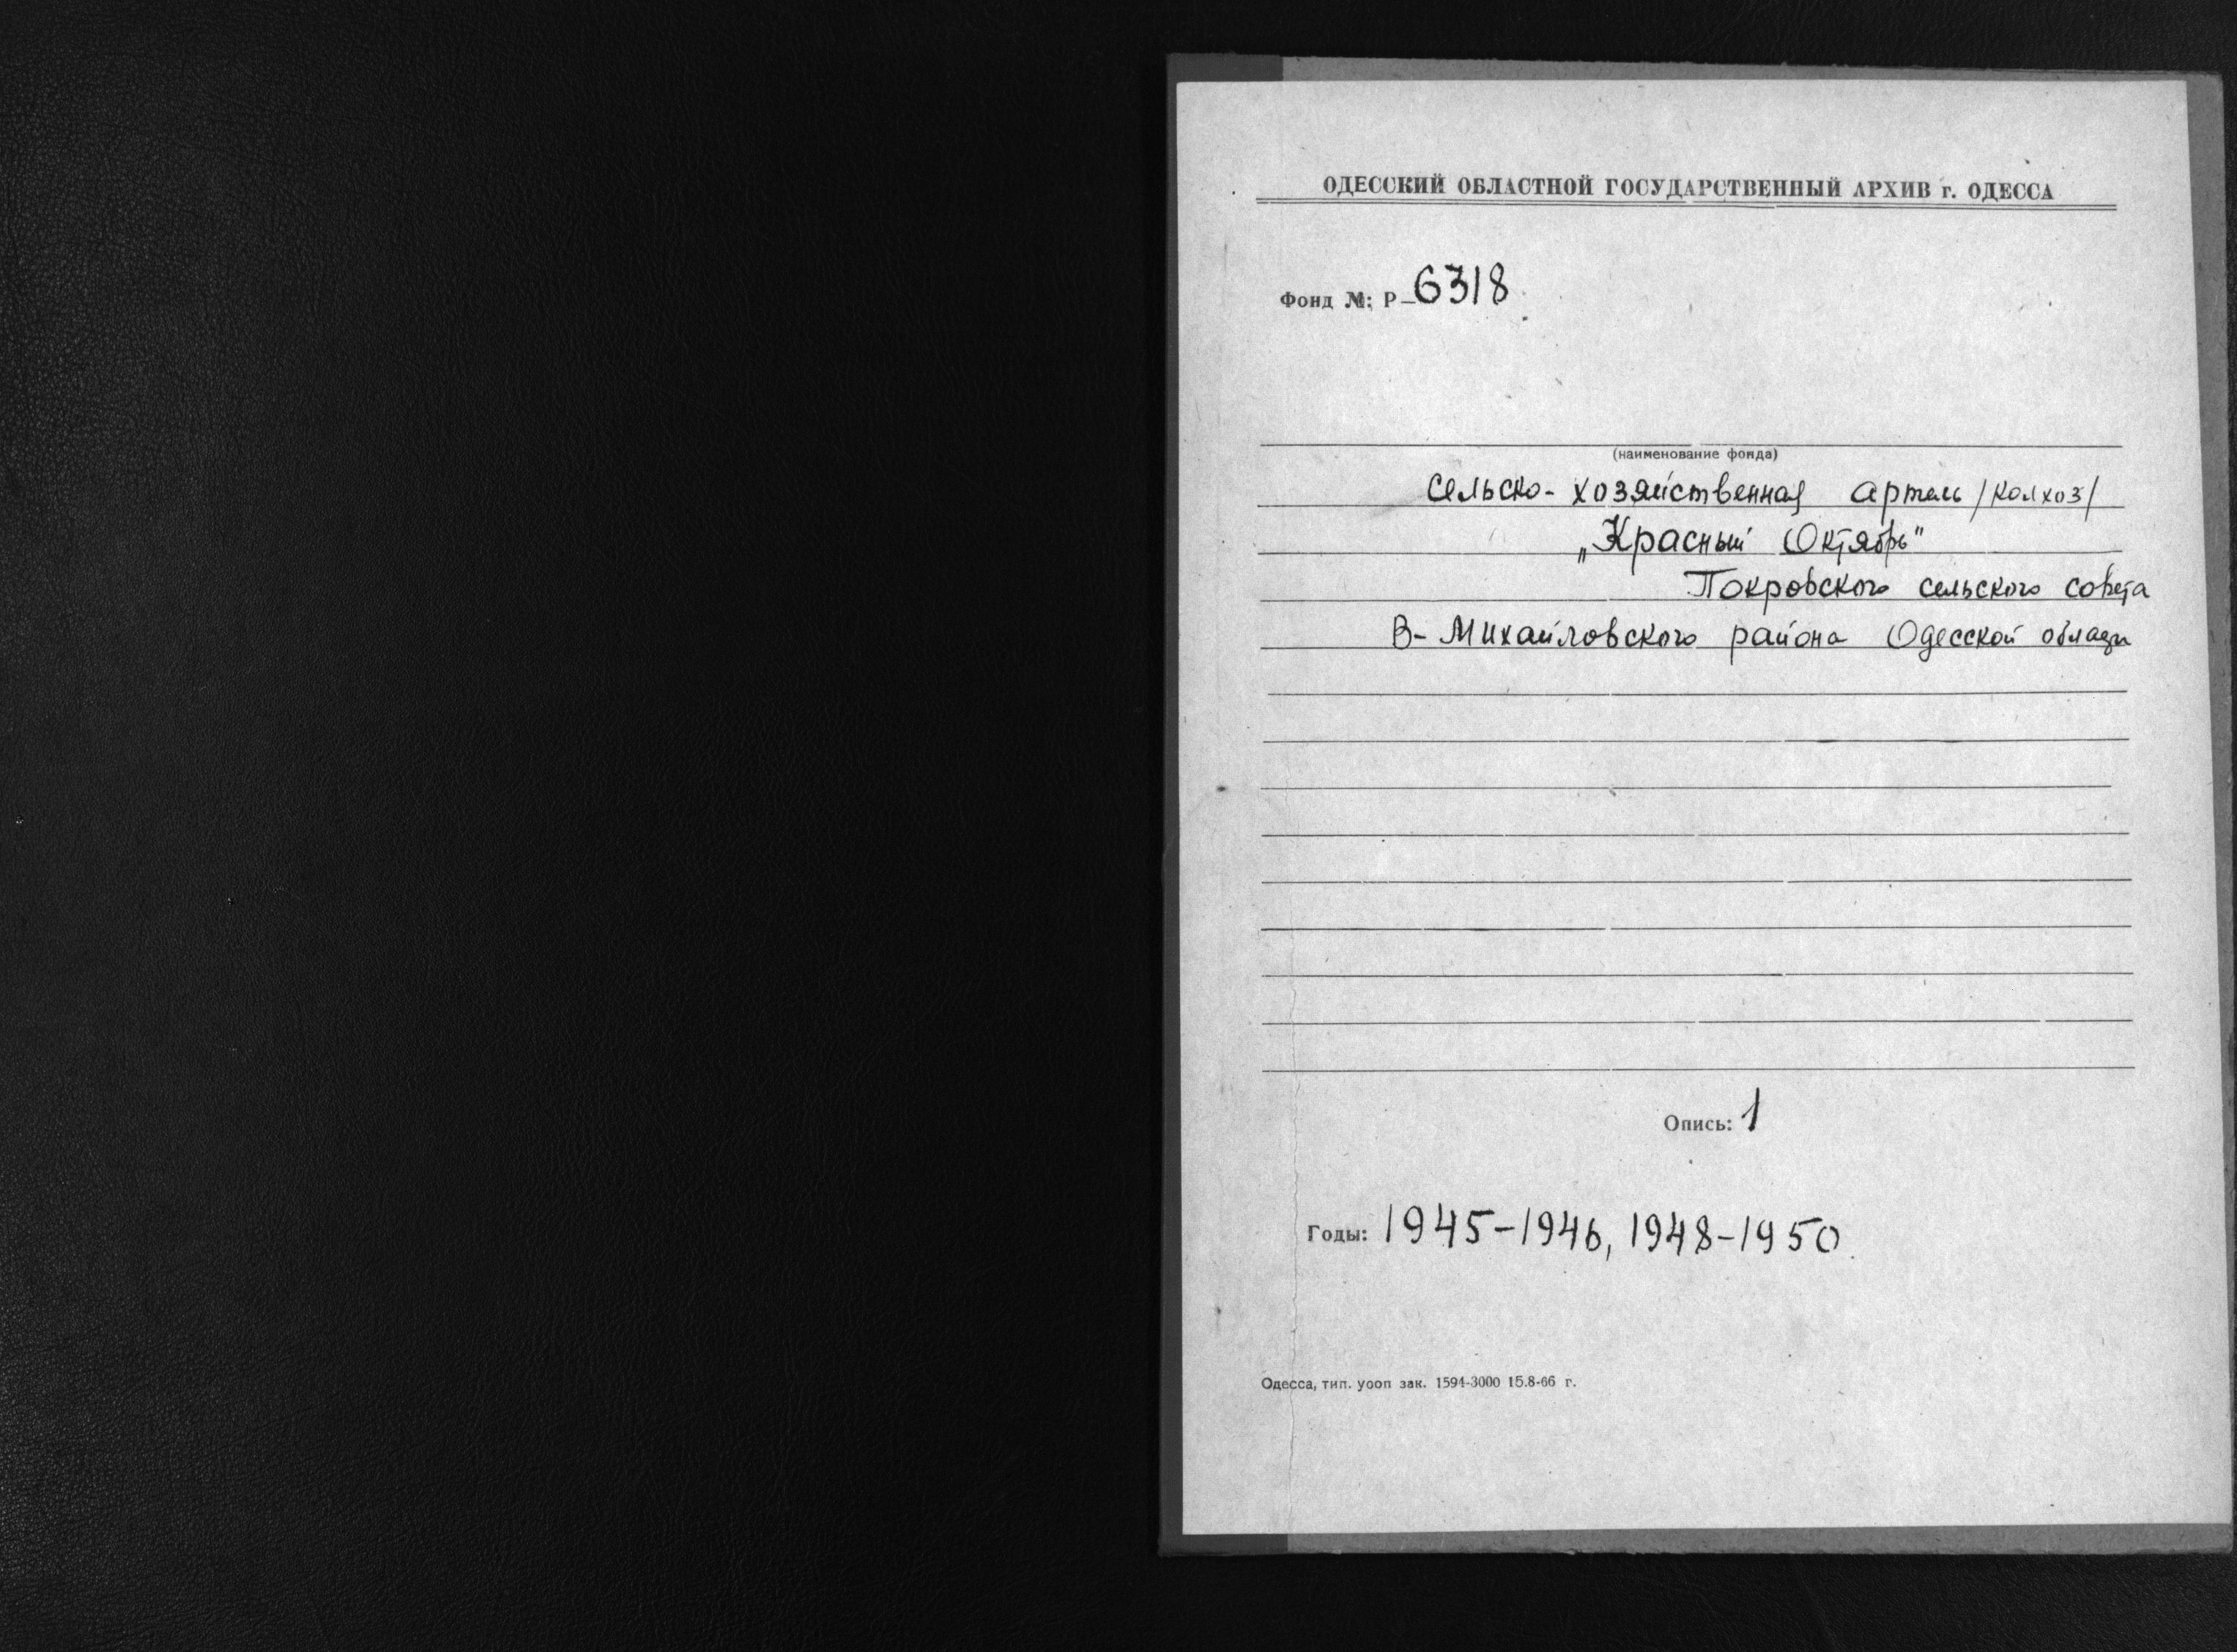 ОДЕССКИЙ ОБЛАСТНОЙ ГОСУДАРСТВЕННЫЙ АРХИВ г. ОДЕССА
Фонд №: Р-6318
(наименование фонда)
Сельско-хозяйственная артель /колхоз/
„Красный Октябрь"
Покровского сельского совета
В-Михайловского района Одесской области
Опись: 1
Годы: 1945-1946, 1948-1950
Одесса, тип. уооп зак. 1594-3000 15.8-66 г.